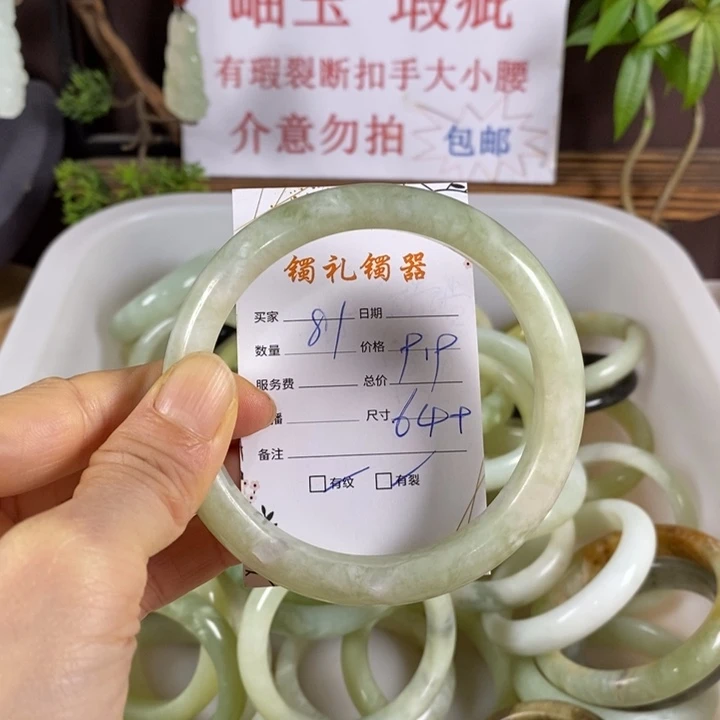 岫玉 瑕疵
有瑕裂断扣手大小腰
介意勿拍 包邮
镯礼镯器
买家 81 日期
数量 价格 9.9
服务费 总价
播 尺寸 64
备注
□有纹 □有裂